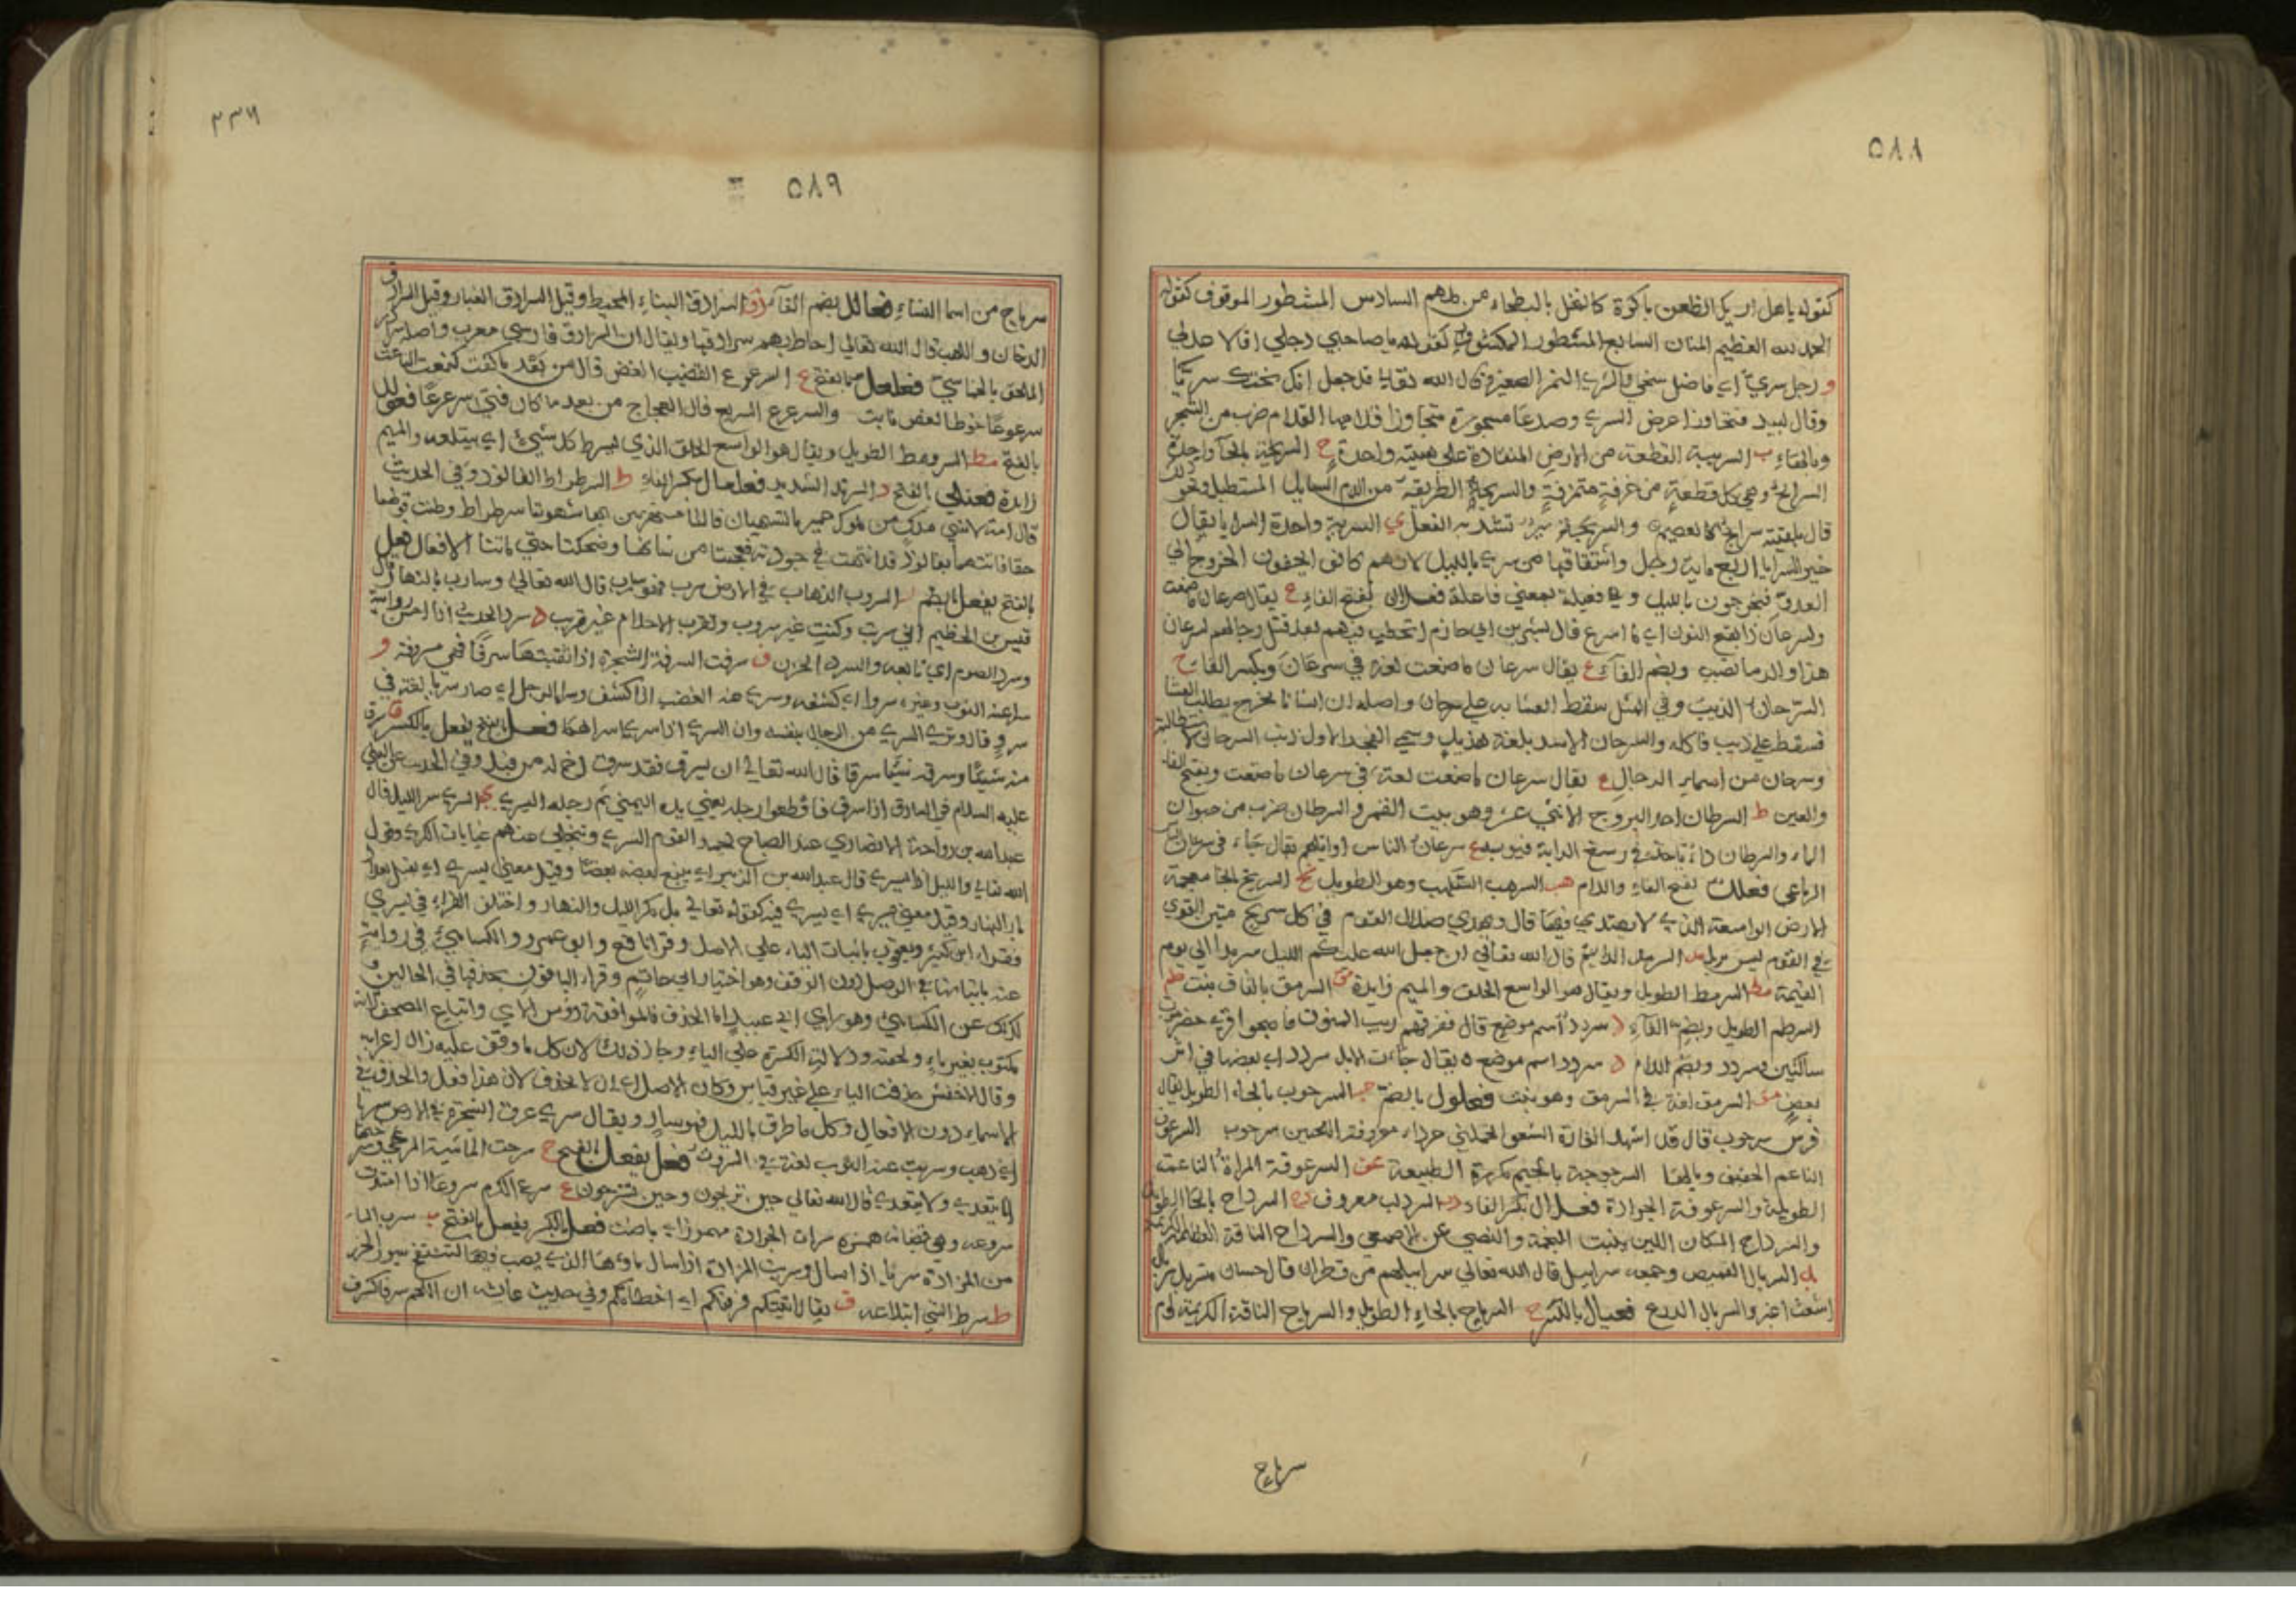 ٥٨٨
كقوله يا هل اريك الظعن باكرة كالنخل بالبطحاء من ملهم السادس المشطور الموقوف كقوله
الحمد لله العظيم المنان السابع المشطور المكشوف كقوله يا صاحبي رحلي اقلا عذلي
و رجل سري اي فاضل سخي والسري النهر الصغير قال الله تعالى قد جعل ربك تحتك سريا
وقال لبيد فتجاوزا عرض السري وصدعا مسجورة متجاوزا قلامها القلام ضرب من الشجر
وبالهاء ب السريبة القطعة من الارض المنقادة على هيئة واحدة ح السريحة بالحاء واحدة
السرائح وهي كل قطعة من خرقة متمزقة والسريحة الطريقة من الدم السائل المستطيل نحو ذلك
قال بلبته سرائح كالعصيم والسريحة سير تشد به النعل ي السرية واحدة السرايا يقال
خير السرايا اربع ماية رجل واشتقاقها من سرى بالليل لانهم كانوا يخفون الخروج الى
العدو فيخرجون بالليل وهي فعيلة بمعنى فاعلة فعلان بفتح الفاء ع يقال سرعان ما صنعت
ولسرعان ذا بفتح النون اي ما اسرع قال بشر بن ابي خازم اتخطب فيهم بعد قتل رجالهم لسرعان
هذا والدماء تصبب وبضم الفاء ع يقال سرعان ما صنعت لغة في سرعان وبكسر الفاء ح
السرحان الذئب وفي المثل سقط العشاء به على سرحان واصله ان انسانا خرج يطلب العشا
فسقط على ذيب فاكله والسرحان الاسد بلغة هذيل وسمي الفجر الاول ذنب السرحان لاستطالته
وسرحان من اسماء الرجال ع يقال سرعان ما صنعت لغة في سرعان ما صنعت وبفتح الفاء
والعين ط السرطان احد البروج الاثني عشر وهو بيت القمر والسرطان ضرب من حيوان
الماء والسرطان داء ياخذ في رسغ الدابة فييبس ع سرعان الناس اوائلهم يقال جاء في سرعان الناس
الرباعي فعلل بفتح الفاء واللام هب السرهب السلهب وهو الطويل بخ السربخ بالخاء معجمة
الارض الواسعة التي لا يهتدى فيها قال ويهدي ضلال القوم في كل سربخ متين القوى
في القوم ليس بزمل مد السرمد الدائم قال الله تعالى ان جعل الله عليكم الليل سرمدا الى يوم
القيمة مط السرمط الطويل ويقال هو الواسع الحلق والميم زايدة مق السرمق بالقاف نبت طم
السرطم الطويل وبضم الفاء د سردد اسم موضع قال ففرقهم ريب المنون فاصبحوا قرى حضرموت
ساكنين وسردد وبضم اللام د سردد اسم موضع ه يقال جاءت الابل سردد اي بعضها في اثر
بعض مق السرمق لغة في السرمق وهو نبت فعلول بالضم حب السرحوب بالحاء الطويل يقال
فرس سرحوب قال قد اشهد الغارة الشعواء تحملني جرداء معروقة اللحيين سرحوب السرعوف
الناعم الخفيف وبالهاء السرجوجة بالجيم مكررة الطبيعة عف السرعوفة المرأة الناعمة
الطويلة والسرعوفة الجرادة فعلال بكسر الفاء دب السردب معروف دح السرداح بالحاء الطويل
والسرداح المكان اللين ينبت النجمة والنصي عن الاصمعي والسرداح الناقة العظيمة الكريمة
بل السربال القميص وجمعه سرابيل قال الله تعالى سرابيلهم من قطران قال حسان متسربل سربال
اشعث اغبر والسربال الدرع فعيال بالكسر ح السرياح بالحاء الطويل والسرياح الناقة الكريمة وام
سرياح
٥٨٩
سرياح من اسما النساء فعالل بضم الفاء دق السرادق البناء المحيط وقيل السرادق الغبار وقيل السرادق
الدخان واللهب قال الله تعالى احاط بهم سرادقها ويقال ان السرادق فارسي معرب واصله
الملحق بالخماسي فعلعل بالفتح ع السرعرع القضيب الغض قال من بعد ما كنت كنعت الناعت
سرعرعا خوطا كغصن نابت والسرعرع السريع قال العجاج من بعد ما كان فتى سرعرعا فعومل
بالفتح مط السرومط الطويل ويقال هو الواسع الحلق الذي يسرط كل شيء اي يبتلعه والميم
زايدة فعندى بالفتح د السرندى الشديد فعلعال بكسر الفاء ط السرطراط الفالوذ وفي الحديث
بالفتح يفعل بالضم ب السروب الذهاب في الارض سرب فهو سارب قال الله تعالى وسارب بالنهار قال
قيس بن الخطيم انى سربت وكنت غير سروب وتقرب الاحلام غير قريب د سرد الحديث اذا احسن روايته
وسرد الصوم اي تابعه والسرد الخرز ف سرفت السرفة الشجرة اذا ثقبتها سرفا فهي مسروفة و
سرا عنه الثوب وغيره سروا اي كشفه وسرى عنه الغضب اذا كشف وسرا الرجل اي صار سريا لغة في
سرو قال وترى السري من الرجال بنفسه وابن السري اذا سرى اسراهما فعل بالفتح يفعل بالكسر ق سرق
منه شيئا وسرقه شيئا سرقا قال الله تعالى ان يسرق فقد سرق اخ له من قبل وفي الحديث عن النبي
عليه السلام في السارق اذا سرق فاقطعوا رجله يعني يده اليمنى ثم رجله اليسرى ي السرى سير الليل قال
عبد الله بن رواحة الانصاري عند الصباح يحمد القوم السرى وتنجلي عنهم غيابات الكرى وقول
الله تعالى والليل اذا يسري قال عبد الله بن الزبير اي يتبع بعضه بعضا وقيل معنى يسري اي يقبل بعد
ادبار النهار وقيل معنى يسري اي يسرى فيه كقوله تعالى بل مكر الليل والنهار واختلف القراء في يسري
فقراه ابن كثير ويعقوب باثبات الياء على الاصل وقرا نافع وابو عمرو والكسائي في رواية
عنه باثباتها في الوصل دون الوقف وهو اختيار ابي حاتم وقراء الباقون بحذفها في الحالين
كذلك عن الكسائي وهو راي ابي عبيد اما الحذف فلموافقة رؤس الآي واتباع المصحف لانه
مكتوب بغير ياء ولخفته ودلالة الكسرة على الياء وجاز ذلك لان كل ما وقف عليه زال اعرابه
وقال الاخفش حذفت الياء على غير قياس وكان الاصل ان لا تحذف لان هذا فعل والحذف في
الاسماء دون الافعال وكل ما طرق بالليل فهو سار ويقال سرى عرق الشجرة في الارض سريا
اي ذهب وسريت عنه الثوب لغة في السروت فعل يفعل بالفتح ح سرحت الماشية المرعى وسرحتها
يتعدى ولا يتعدى قال الله تعالى حين تريحون وحين تسرحون ع سرع الكرم سروعا اذا امتدت
سروعه وهي قضبانه همزة سرأت الجرادة مهموز اي باضت فعل بالكسر يفعل بالفتح ب سرب الماء
من المزادة سربا اذا سال وسربت المزادة اذا سال ماؤها
ط سرط الشيء ابتلاعه ف يقال اتيتكم فسرفتكم اي اخطاتكم وفي حديث عائشة ان للحم سرفا كسرف